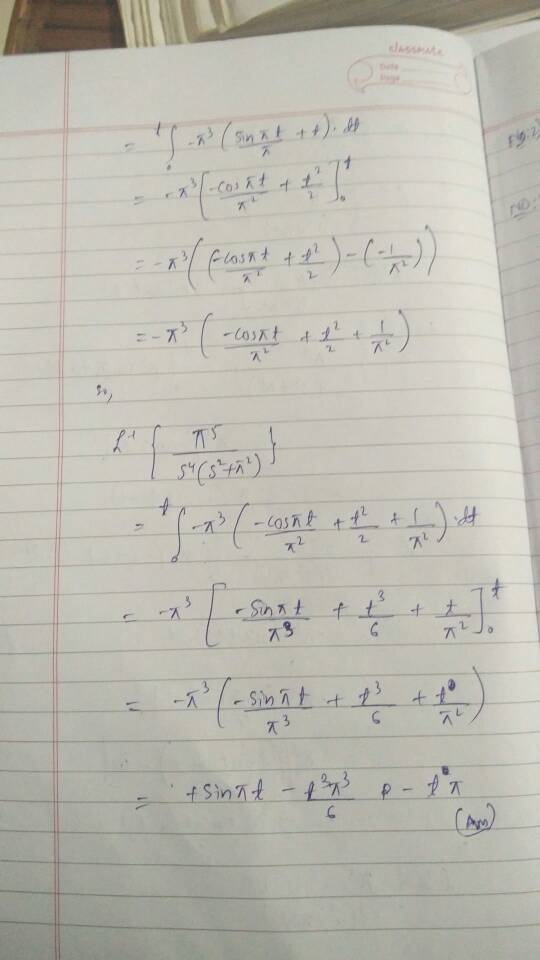 classmate
Date
Page
= ∫₀ᵗ -π³ (sin πt/π + t) · dt
= -π³ [-cos πt/π² + t²/2]₀ᵗ
= -π³ ((-cos πt/π² + t²/2) - (-1/π²))
= -π³ (-cos πt/π² + t²/2 + 1/π²)
so,
L⁻¹ { π⁵/s⁴(s²+π²) }
= ∫₀ᵗ -π³ (-cos πt/π² + t²/2 + 1/π²) · dt
= -π³ [-sin πt/π³ + t³/6 + t/π²]₀ᵗ
= -π³ (-sin πt/π³ + t³/6 + t/π²)
= + sin πt - t³π³/6 - tπ
(Ans)